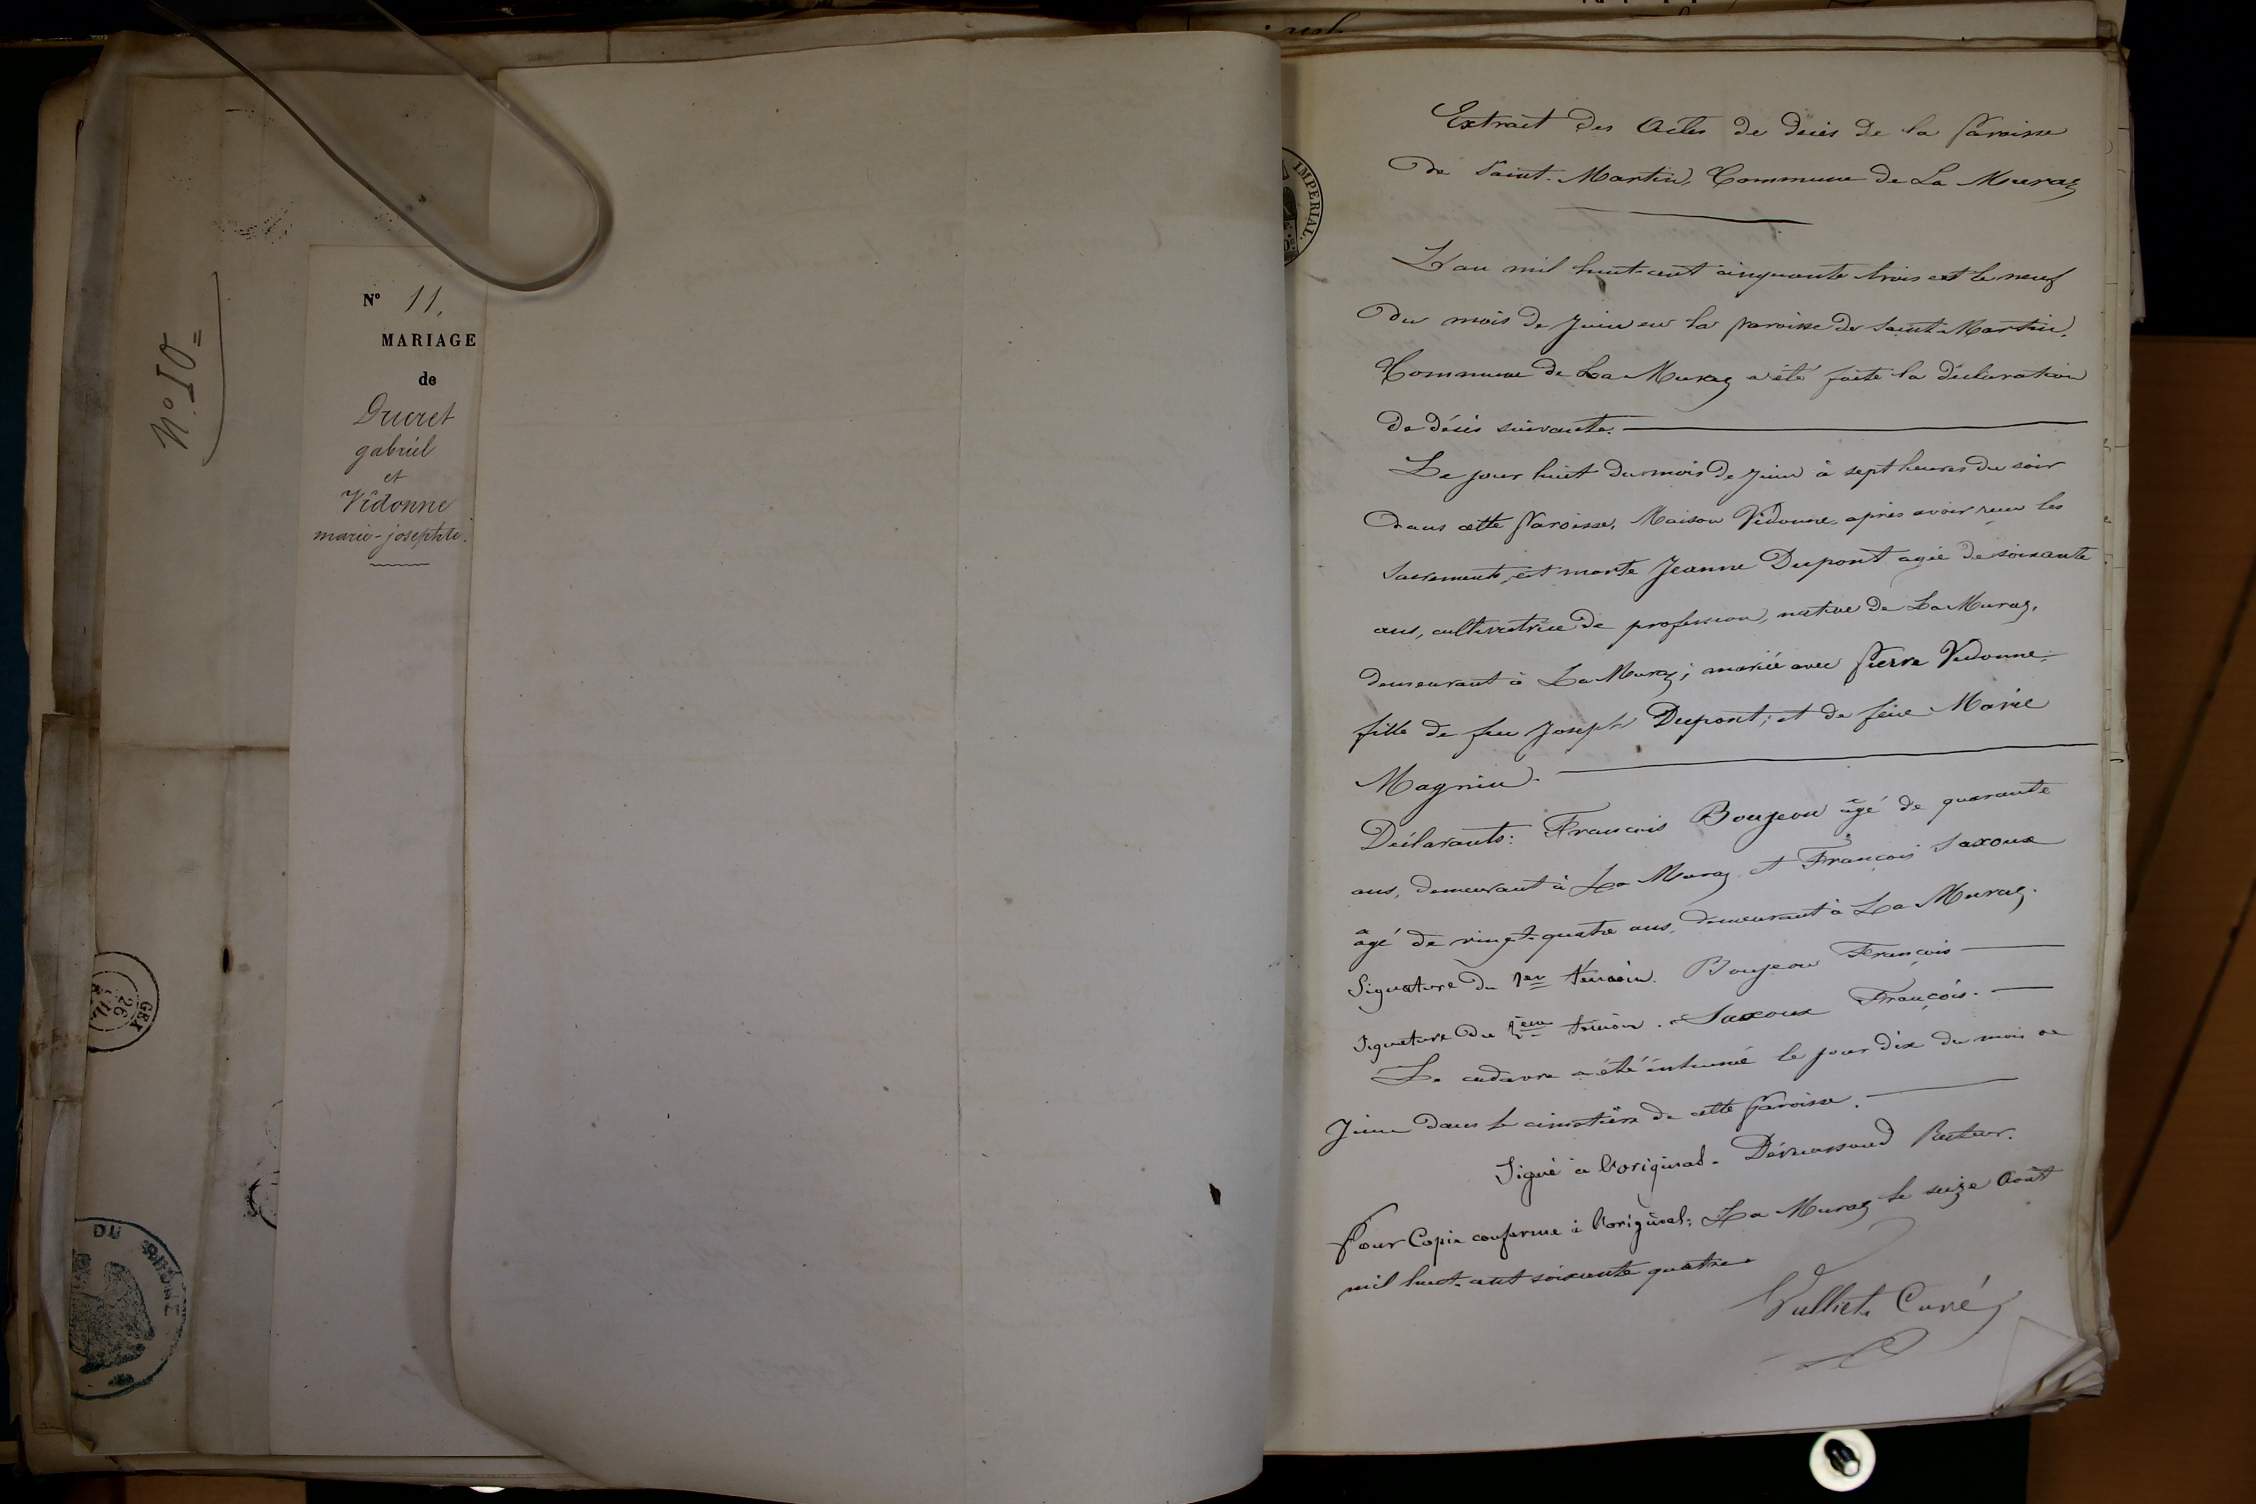 N° 10=
N° 11.
MARIAGE
de
Ducret
gabriel
et
Vidonne
marie-josephte.
GEX
26
DU RHONE
IMPERIAL.
Extrait des Actes de décès de la Paroisse
de Saint-Martin, Commune de La Muraz
L'an mil huit cent cinquante trois et le neuf
du mois de Juin en la paroisse de Saint-Martin,
Commune de La Muraz a été faite la déclaration
de décès suivante.
Le jour huit du mois de Juin à sept heures du soir
dans cette Paroisse, Maison Vidonne, après avoir reçu les
Sacrements, est morte Jeanne Dupont agée de soixante
ans, cultivatrice de profession, native de La Muraz,
demeurant à La Muraz; mariée avec Pierre Vidonne;
fille de feu Joseph Dupont; et de feüe Marie
Magnin.
Déclarants: François Boujeon âgé de quarante
ans, demeurant à La Muraz et François Saxoux
âgé de vingt-quatre ans, demeurant à La Muraz.
Signature du 1er témoin. Boujeon François
Signature du 2ème témoin. Saxoux François.
Le cadavre a été inhumé le jour dix du mois de
Juin dans le cimetière de cette Paroisse.
Signé à l'original. Recteur.
Pour Copie conforme à l'original; La Muraz le seize Août
mil huit-cent soixante quatre
Vulliet. Curé